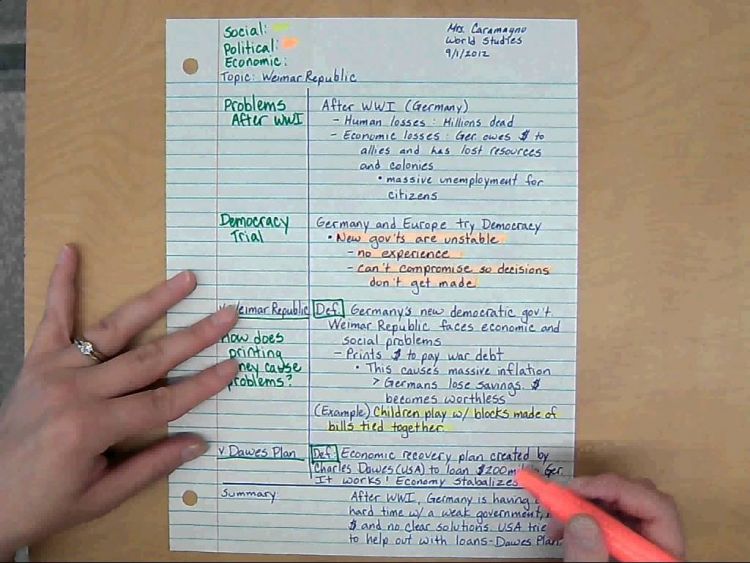 Social:
Political:
Economic:
Mrs. Caramagno
World Studies
9/1/2012
Topic: Weimar Republic
Problems
After WWI
After WWI (Germany)
- Human losses: Millions dead
- Economic losses: Ger owes $ to
allies and has lost resources
and colonies
• massive unemployment for
citizens
Democracy
Trial
Germany and Europe try Democracy
• New gov'ts are unstable
- no experience
- can't compromise so decisions
don't get made
Weimar Republic
Def: Germany's new democratic gov't.
Weimar Republic faces economic and
social problems
How does
printing
cause
problems?
- Prints $ to pay war debt
• This causes massive inflation
> Germans lose savings. $
becomes worthless
(Example) Children play w/ blocks made of
bills tied together.
v Dawes Plan
Def: Economic recovery plan created by
Charles Dawes (USA) to loan $200 Ger.
It works! Economy stabalizes
Summary
After WWI, Germany is having
hard time w/ a weak government,
$ and no clear solutions. USA
to help out with loans-Dawes Plan.